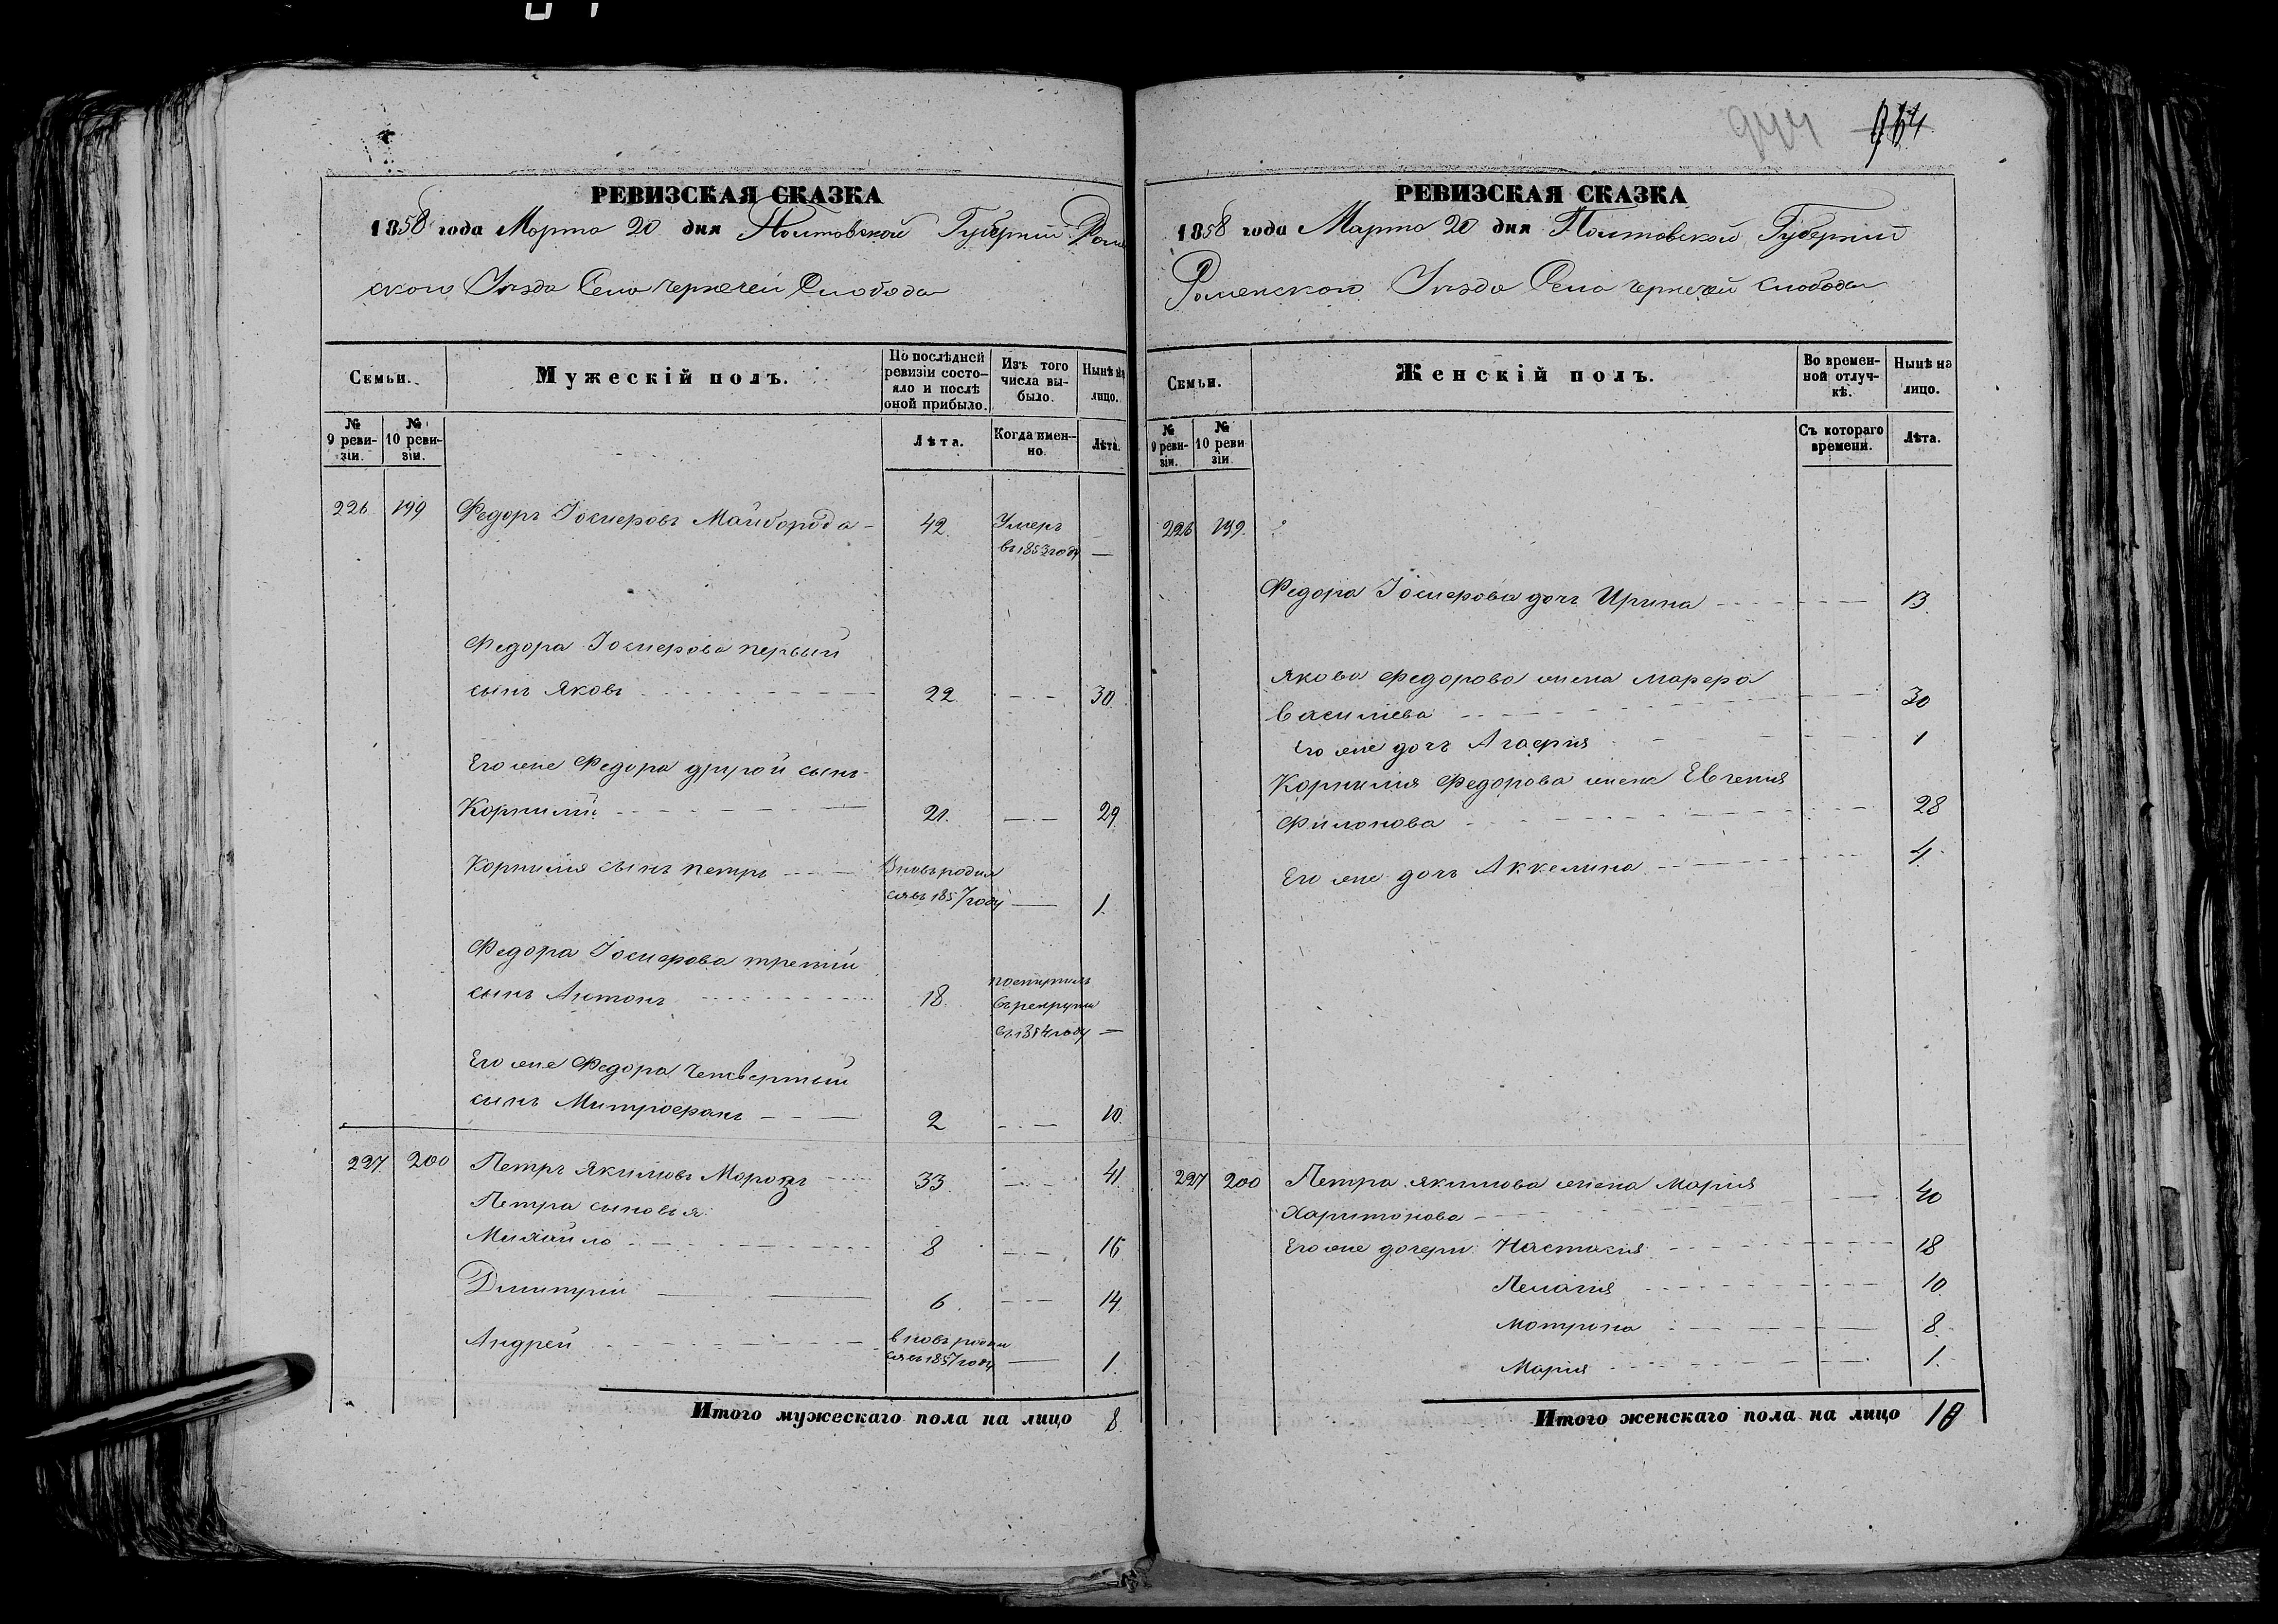 944 964
РЕВИЗСКАЯ СКАЗКА
1858 года Марта 20 дня Полтавской Губерніи Ромен
ского Уѣзда Села Чернечей Слободы
Семьи.
Мужескій полъ.
По послѣдней ревизіи состояло и послѣ оной прибыло.
Изъ того числа выбыло.
Нынѣ на лицо.
№ 9 ревизіи.
№ 10 ревизіи.
Лѣта.
Когда именно.
Лѣта.
226 199 Федоръ Іосиеровъ Майборода 42. Умеръ
въ 1853 году —
Федора Іосиерова первый
сынъ Яковъ 22. 30.
Его же Федора другой сынъ
Корнилій 21. 29.
Корнилія сынъ Петръ Вновь родил
ся въ 1857 году 1.
Федора Іосиерова третій
сынъ Антонъ 18. поступилъ
въ рекруты
въ 1854 году —
Его же Федора четвертый
сынъ Митрофанъ 2 10.
227. 200 Петръ Якимовъ Морозъ 33. 41
Петра сыновья:
Михайло 8 16
Дмитрій 6. 14.
Андрей вновь родил
ся въ 1857 году 1.
Итого мужескаго пола на лицо 8.
РЕВИЗСКАЯ СКАЗКА
1858 года Марта 20 дня Полтавской Губерніи
Роменского Уѣзда Села Чернечей Слободы
Семьи.
Женскій полъ.
Во временной отлучкѣ.
Нынѣ на лицо.
№ 9 ревизіи.
№ 10 ревизіи.
Съ котораго времени.
Лѣта.
226 199.
Федора Іосиерова дочь Ирина 13.
Якова Федорова жена Марфа
Василіева 30
Его же дочь Агафія 1
Корнилія Федорова жена Евгенія
Филонова 28
Его же дочь Аккелина 4.
227 200 Петра Якимова жена Марія
Харитонова 40
Его же дочери: Настасія 18
Пелагія 10.
Мотрона 8.
Марія 1.
Итого женскаго пола на лицо 10